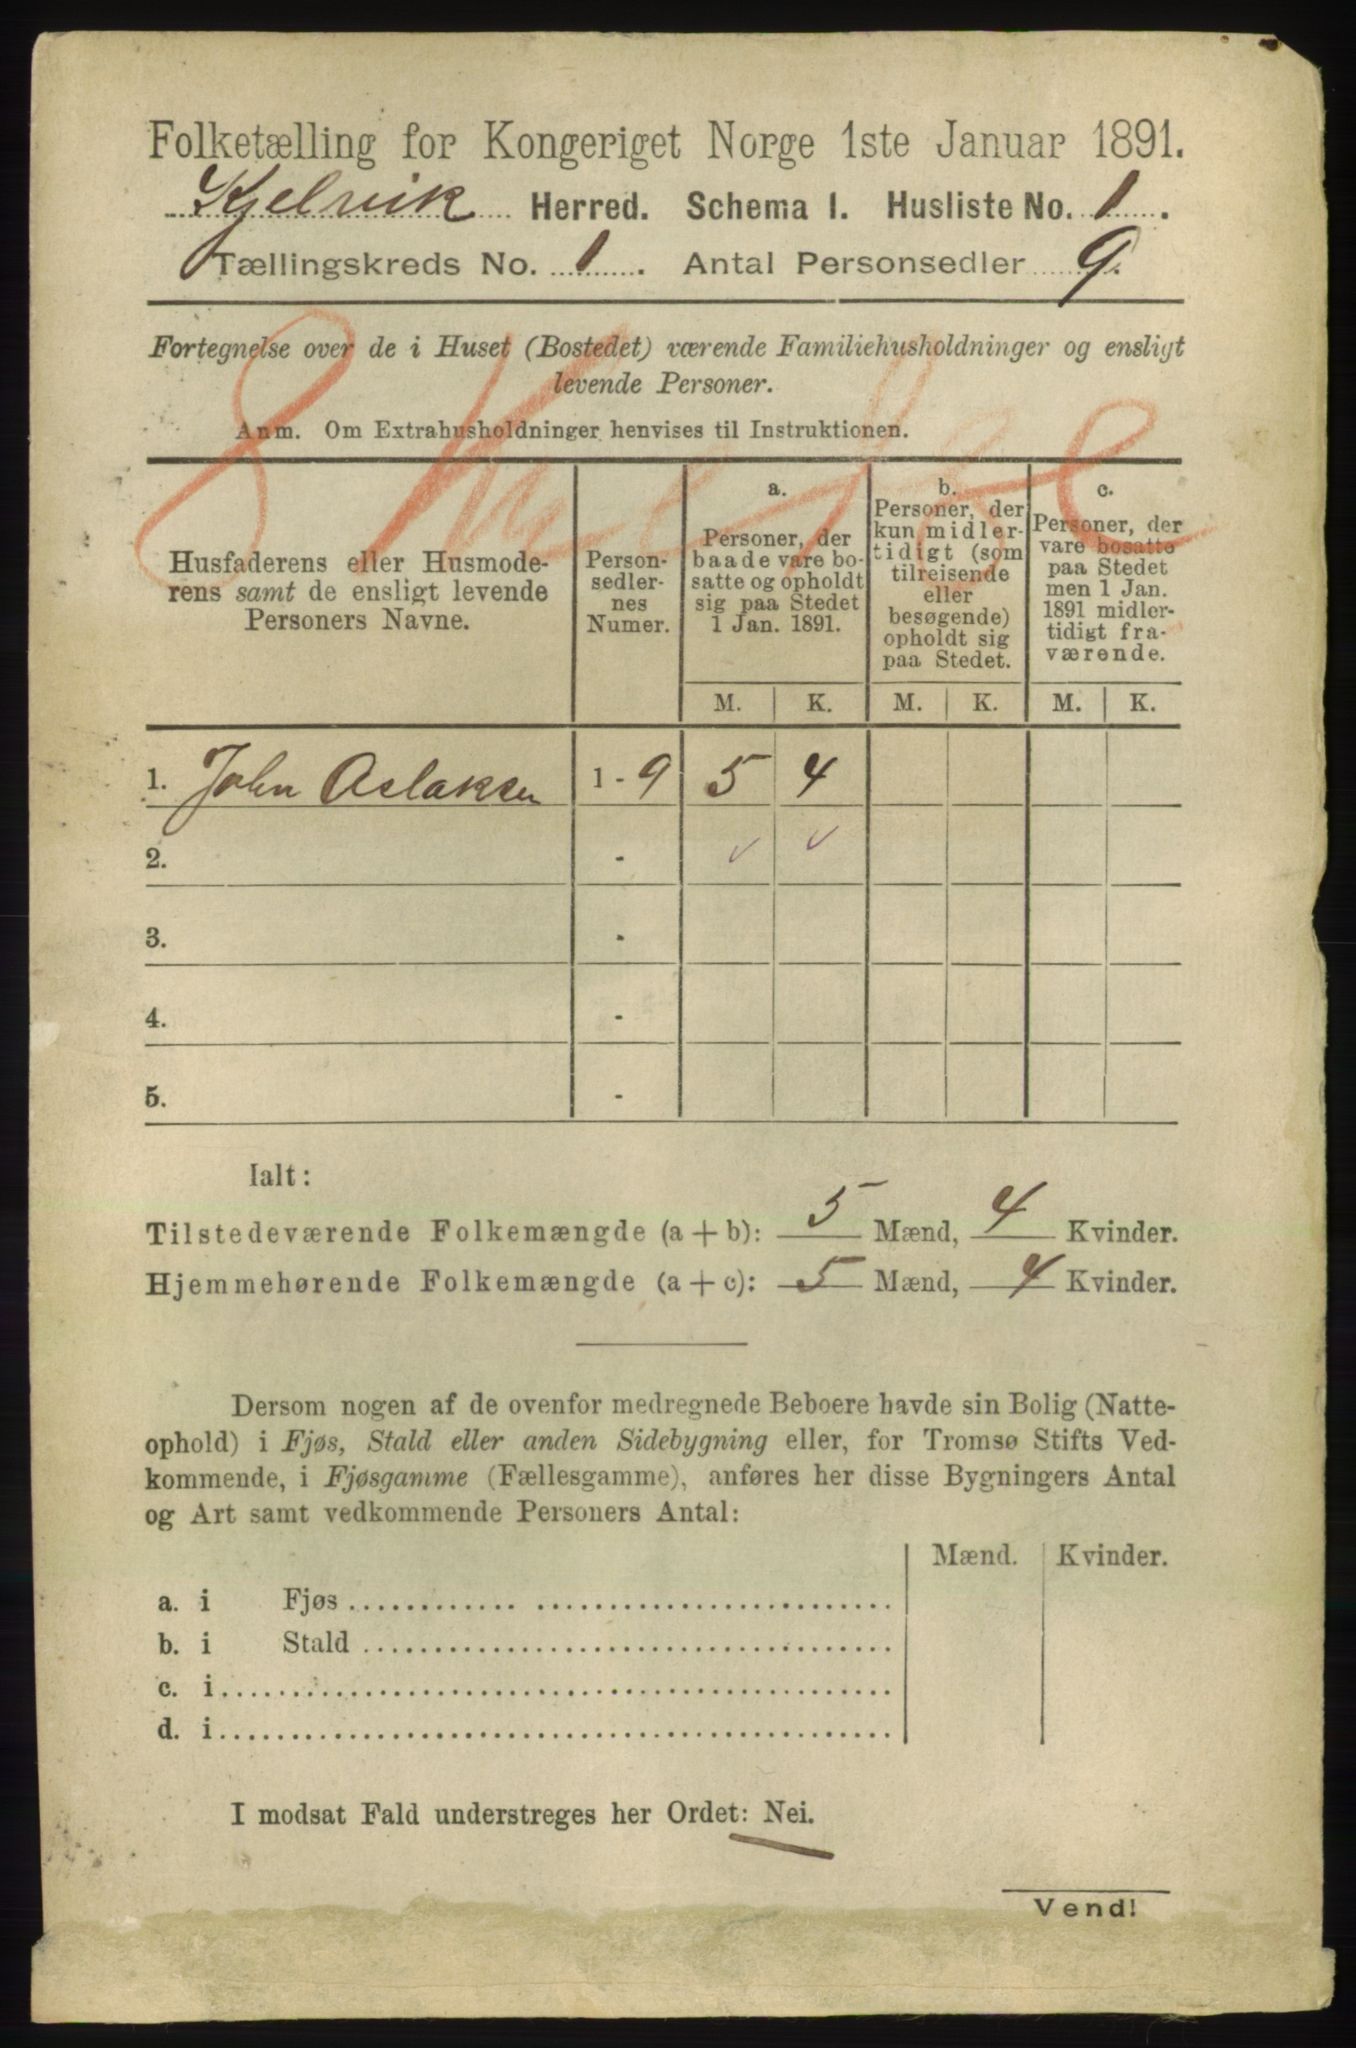 Folketælling for Kongeriget Norge 1ste Januar 1891.
Kjelvik Herred. Schema I. Husliste No. 1.
Tællingskreds No. 1. Antal Personsedler 9.
Fortegnelse over de i Huset (Bostedet) værende Familiehusholdninger og ensligt
levende Personer.
Anm. Om Extrahusholdninger henvises til Instruktionen.
Husfaderens eller Husmode-
rens samt de ensligt levende
Personers Navne.
Person-
sedler-
nes
Numer.
a.
Personer, der
baade vare bo-
satte og opholdt
sig paa Stedet
1 Jan. 1891.
b.
Personer, der
kun midler-
tidigt (som
tilreisende
eller
besøgende)
opholdt sig
paa Stedet.
c.
Personer, der
vare bosatte
paa Stedet
men 1 Jan.
1891 midler-
tidigt fra-
værende.
M. K. M. K. M. K.
1. John Aslaksen 1 - 9 5 4
2. -
3. -
4. -
5. -
Ialt:
Tilstedeværende Folkemængde (a + b): 5 Mænd, 4 Kvinder.
Hjemmehørende Folkemængde (a + c): 5 Mænd, 4 Kvinder.
Dersom nogen af de ovenfor medregnede Beboere havde sin Bolig (Natte-
ophold) i Fjøs, Stald eller anden Sidebygning eller, for Tromsø Stifts Ved-
kommende, i Fjøsgamme (Fællesgamme), anføres her disse Bygningers Antal
og Art samt vedkommende Personers Antal:
Mænd. Kvinder.
a. i Fjøs
b. i Stald
c. i
d. i
I modsat Fald understreges her Ordet: Nei.
Vend!